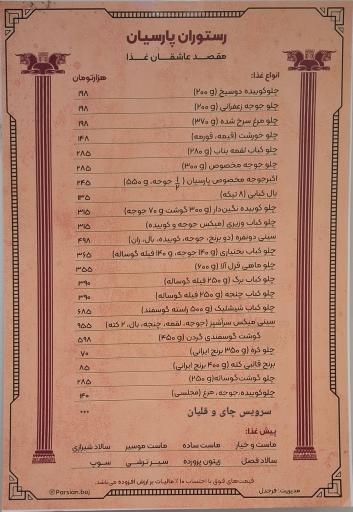 رستوران پارسیان
مقصد عاشقان غذا
انواع غذا: هزارتومان
چلوکوبیده دوسیخ (۲۰۰ g) ۱۹۸
چلو جوجه زعفرانی (۲۰۰ g) ۱۹۸
چلو مرغ سرخ شده (۳۷۰ g) ۱۹۸
چلو خورشت (قیمه، قورمه) ۱۴۸
چلو کباب لقمه بناب (۲۸۰ g) ۲۸۵
چلو جوجه مخصوص (۳۰۰ g) ۲۸۵
اکبرجوجه مخصوص پارسیان (۱/۲ جوجه، ۵۵۰ g) ۲۴۵
بال کبابی (۸ تیکه) ۱۳۵
چلو کوبیده نگین‌دار (۳۰۰ g گوشت ۷۰ g جوجه) ۳۱۵
چلو کباب وزیری (میکس جوجه و کوبیده) ۳۱۵
سینی دونفره (دو برنج، جوجه، کوبیده، بال، ران) ۴۹۸
چلو کباب بختیاری (۱۴۰ g جوجه، ۱۴۰ g فیله گوساله) ۳۶۵
چلو ماهی قزل آلا (۶۰۰ g) ۳۵۵
چلو کباب برگ (۲۵۰ g فیله گوساله) ۳۹۰
چلو کباب چنجه (۲۵۰ g فیله گوساله) ۳۹۰
چلو کباب شیشلیک (۵۰۰ g راسته گوسفند) ۶۸۵
سینی میکس سرآشپز (جوجه، لقمه، چنجه، بال، ۲ کته) ۹۵۵
گوشت گوسفندی گردن (۴۵۰ g) ۵۹۸
چلو کره (۳۵۰ g برنج ایرانی) ۷۰
برنج قالبی کته (۴۰۰ g برنج ایرانی) ۸۵
چلو گوشت گوساله (۲۵۰ g) ۲۸۵
چلوکوبیده،جوجه، مرغ (مجلسی) ۱۴۰
سرویس چای و قلیان ۰۰۰
پیش غذا:
ماست و خیار ماست ساده ماست موسیر سالاد شیرازی
سالاد فصل زیتون پرورده سیر ترشی سوپ
قیمت‌های فوق با احتساب ۱۰٪ مالیات بر ارزش افزوده می‌باشد.
مدیریت: فرجدل Parsian.baj